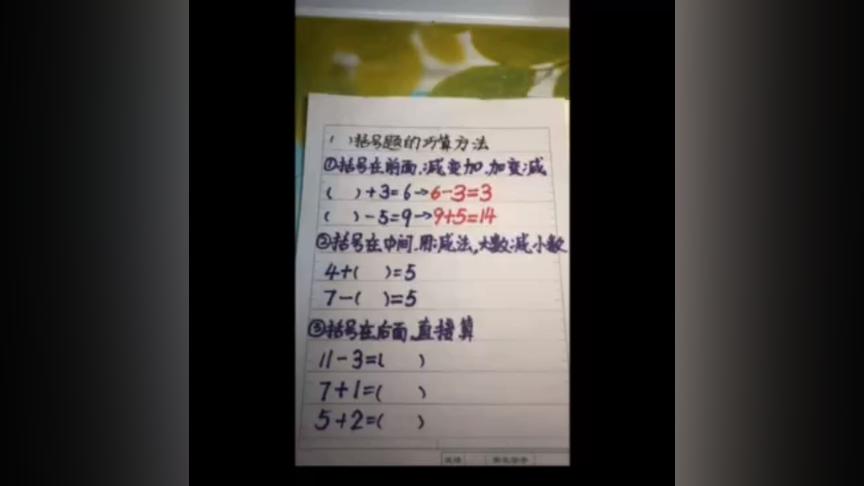 ( )括号题的巧算方法
①括号在前面.减变加.加变减
( )+3=6→6-3=3
( )-5=9→9+5=14
②括号在中间.用减法,大数减小数
4+( )=5
7-( )=5
③括号在后面,直接算
11-3=( )
7+1=( )
5+2=( )